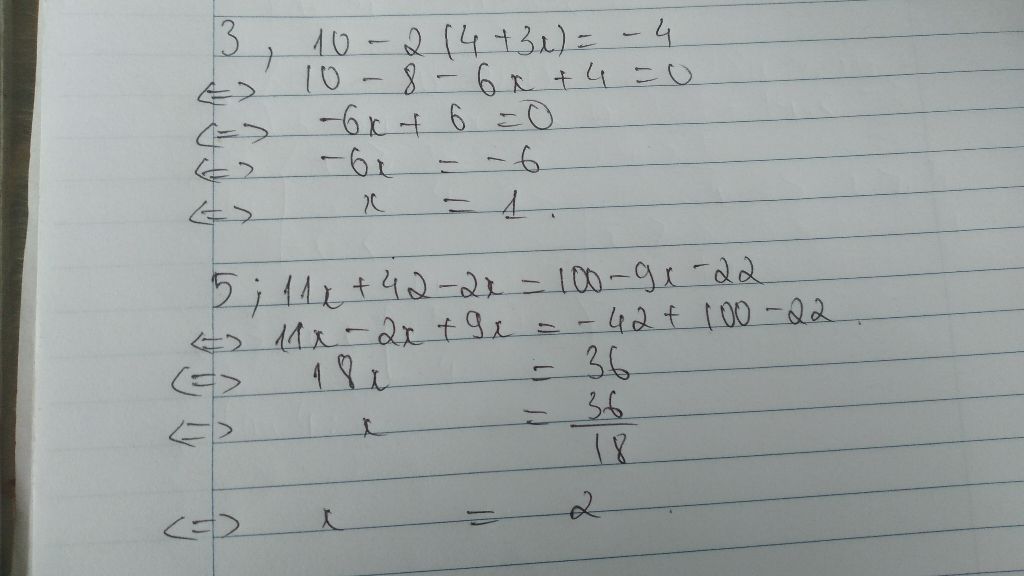 3, 10 - 2 (4 + 3x) = - 4
<=> 10 - 8 - 6x + 4 = 0
<=> -6x + 6 = 0
<=> -6x = - 6
<=> x = 1.
5; 11x + 42 - 2x = 100 - 9x - 22
<=> 11x - 2x + 9x = - 42 + 100 - 22.
<=> 18x = 36
<=> x = 36/18
<=> x = 2.